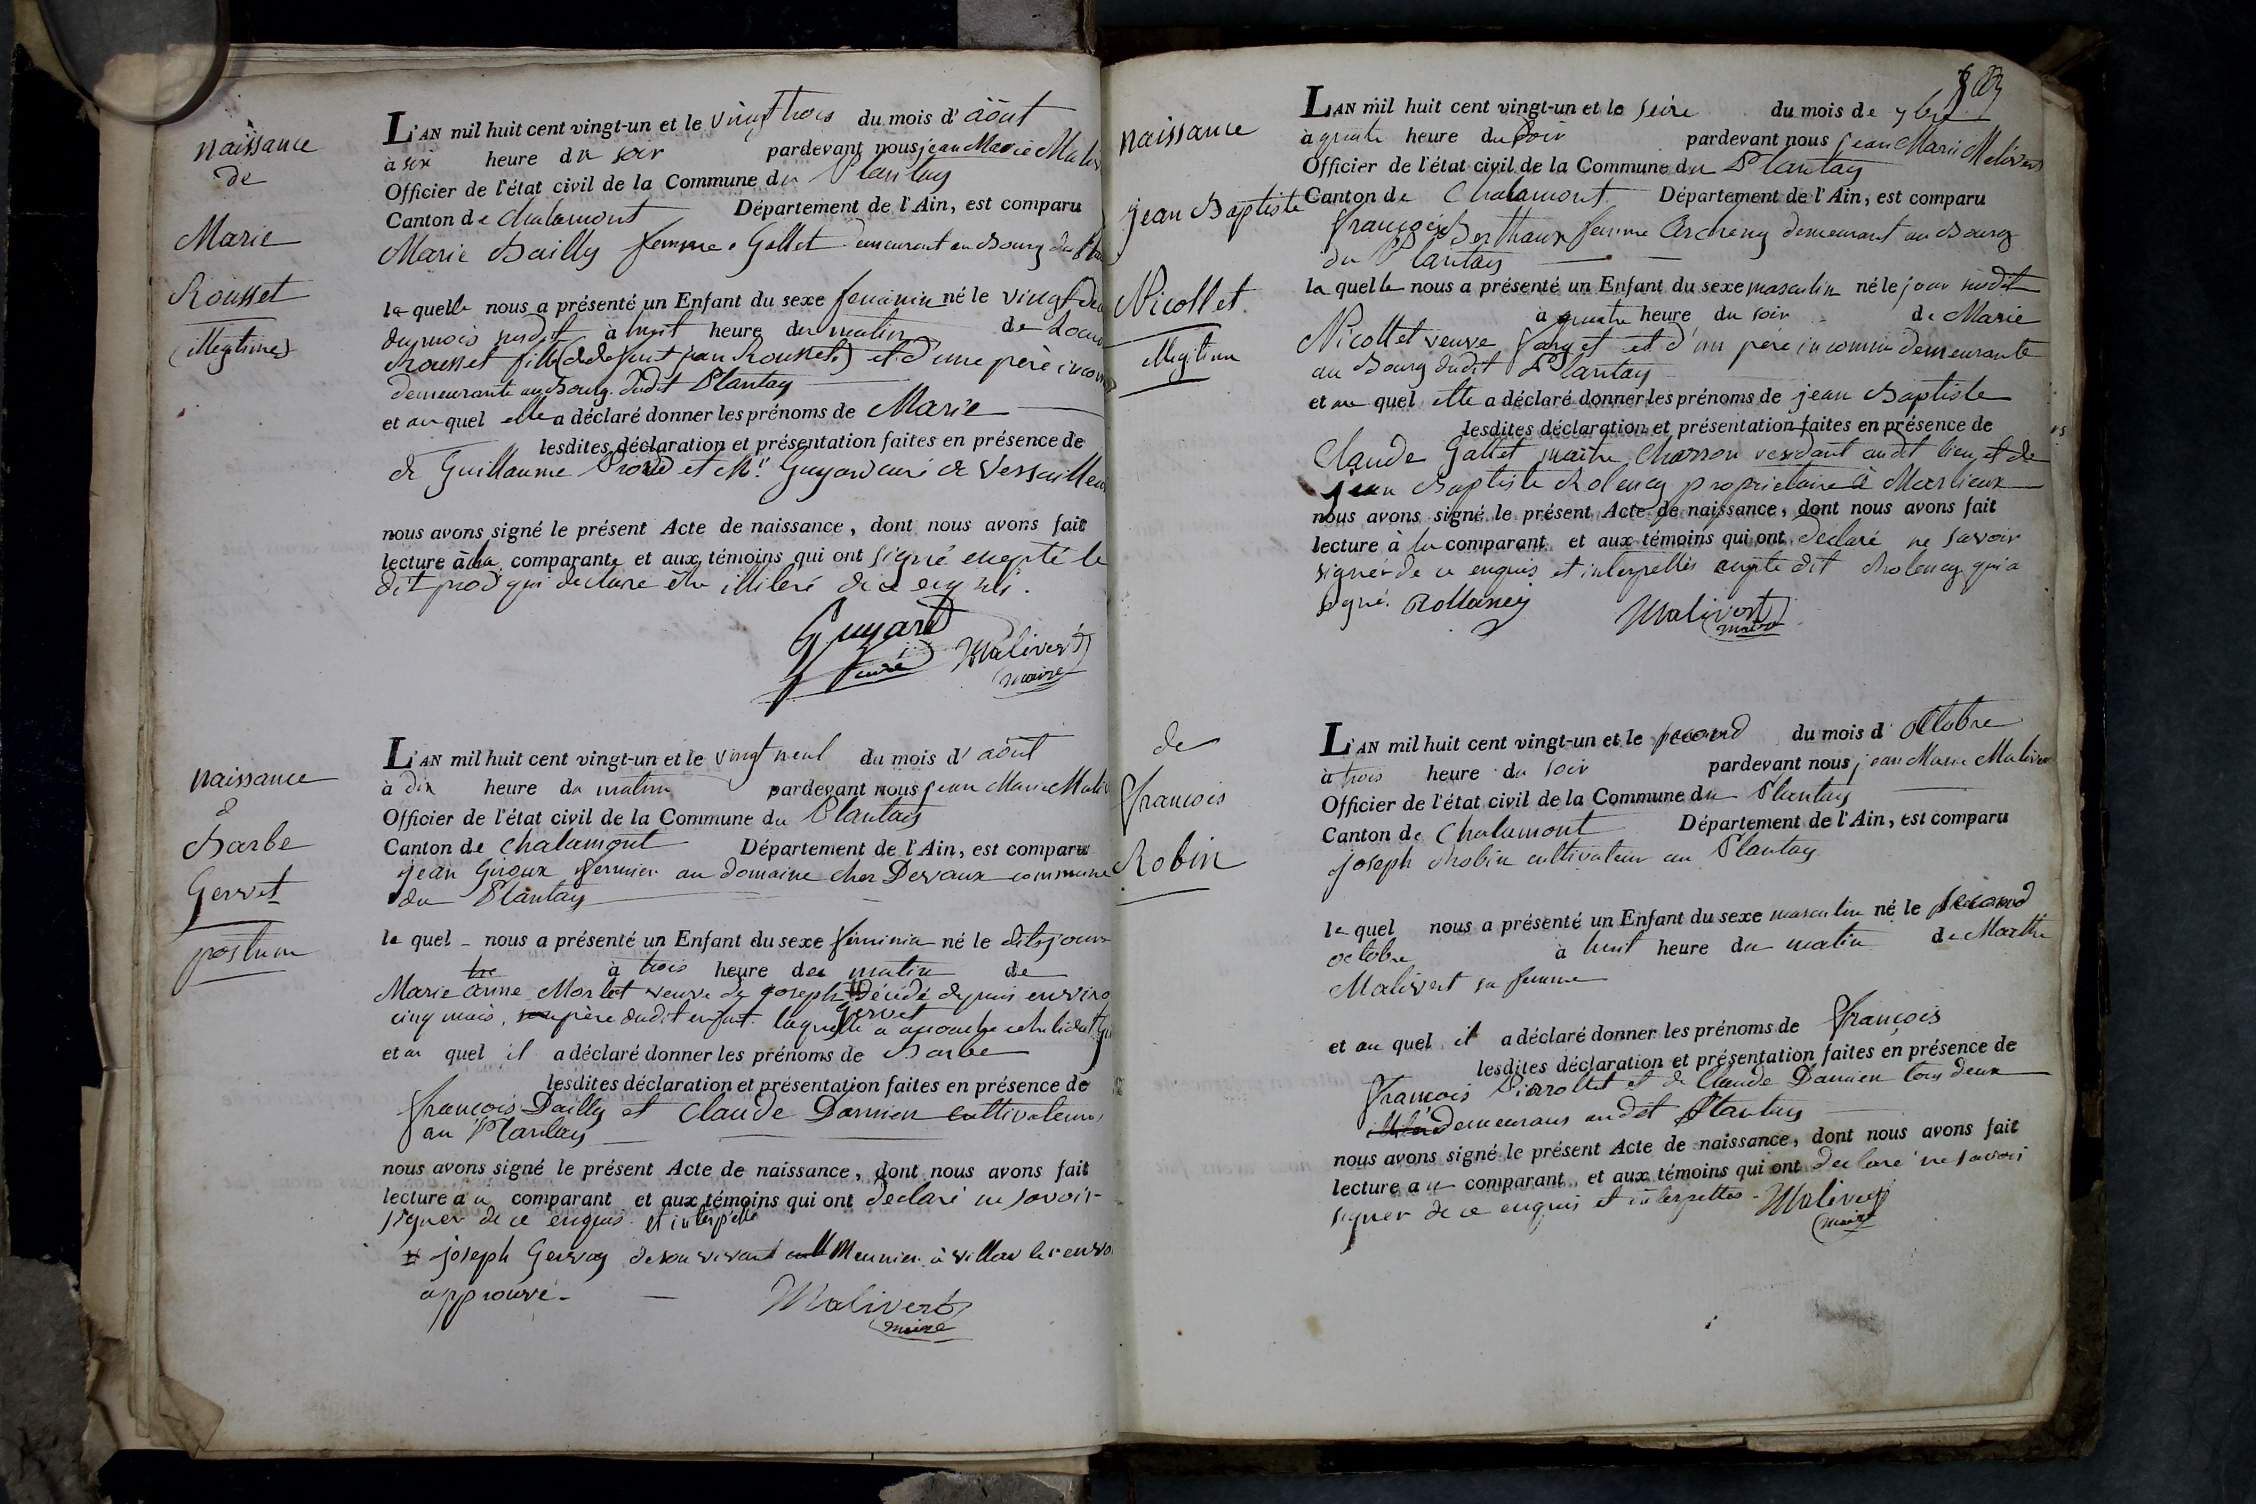 naissance
de
Marie
Rousset
(illegitime)
L'AN mil huit cent vingt-un et le vingt trois du mois d'août
à six heure du soir pardevant nous jean Marie
Officier de l'état civil de la Commune du Plantay
Canton de Chalamont Département de l'Ain, est comparu
Marie Bailly femme Gallet demeurant au Bourg du
laquelle nous a présenté un Enfant du sexe feminin né le vingt
du mois susdit à huit heure du matin de
Rousset fille (de defunt jean Rousset) et d'une père
demeurante au Bourg dudit Plantay
et au quel elle a déclaré donner les prénoms de Marie
lesdites déclaration et présentation faites en présence de
de Guillaume et Mr Guyard curé de
nous avons signé le présent Acte de naissance, dont nous avons fait
lecture à la comparante et aux témoins qui ont signé excepté le
dit qui declare être illiteré de ce
Guyard
curé
Malivert
maire
naissance
Barbe
Gervet
postum
L'AN mil huit cent vingt-un et le vingt neuf du mois d'août
à dix heure du matin pardevant nous jean Marie
Officier de l'état civil de la Commune du Plantay
Canton de Chalamont Département de l'Ain, est comparu
jean Giroux fermier au domaine cher Devaux commune
du Plantay
le quel nous a présenté un Enfant du sexe féminin né le dits jours
à trois heure du matin de
Marie Anne Morlet veuve de joseph décédé depuis
Gervet
cinq mois, père dudit enfant laquelle a
et au quel il a déclaré donner les prénoms de Barbe
lesdites déclaration et présentation faites en présence de
françois Bailly et Claude Damien cultivateurs
au Plantay
nous avons signé le présent Acte de naissance, dont nous avons fait
lecture au comparant et aux témoins qui ont declaré ne savoir
signer de ce enquis et interpellé
joseph Gervay de son vivant Meunier à villar
approuvé
Malivert
maire
naissance
jean Baptiste
Nicollet
illegitime
L'AN mil huit cent vingt-un et le seize du mois de 7bre
à quatre heure du soir pardevant nous jean Marie Malivert
Officier de l'état civil de la Commune du Plantay
Canton de Chalamont Département de l'Ain, est comparu
françoise Berthaux femme demeurant au Bourg
du Plantay
la quelle nous a présenté un Enfant du sexe masculin né le jour susdit
à quatre heure du soir de Marie
Nicollet veuve et d'un père inconnu demeurante
au Bourg dudit Plantay
et au quel elle a déclaré donner les prénoms de jean Baptiste
lesdites déclaration et présentation faites en présence de
Claude Gallet maître Charron audit lieu et de
jean Baptiste proprietaire à Marlieux
nous avons signé le présent Acte de naissance, dont nous avons fait
lecture à la comparant et aux témoins qui ont declaré ne savoir
signer de ce enquis et interpellés dit qui a
signé.
Malivert
maire
de
françois
Robin
L'AN mil huit cent vingt-un et le second du mois d'Octobre
à trois heure du soir pardevant nous jean Marie
Officier de l'état civil de la Commune du Plantay
Canton de Chalamont Département de l'Ain, est comparu
joseph Robin cultivateur au Plantay
le quel nous a présenté un Enfant du sexe masculin né le second
octobre à huit heure du matin de Marthe
Malivert sa femme
et au quel il a déclaré donner les prénoms de françois
lesdites déclaration et présentation faites en présence de
françois Pierrollet et de Claude Damien tous deux
demeurans audit Plantay
nous avons signé le présent Acte de naissance, dont nous avons fait
lecture au comparant et aux témoins qui ont declaré ne savoir
signer de ce enquis et interpellés Malivert
maire